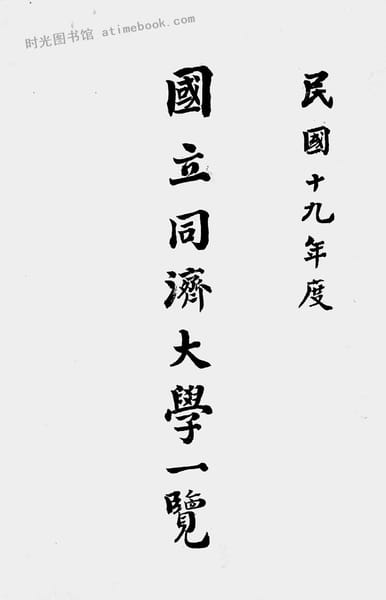 时光图书馆 atimebook.com
民國十九年度
國立同濟大學一覽